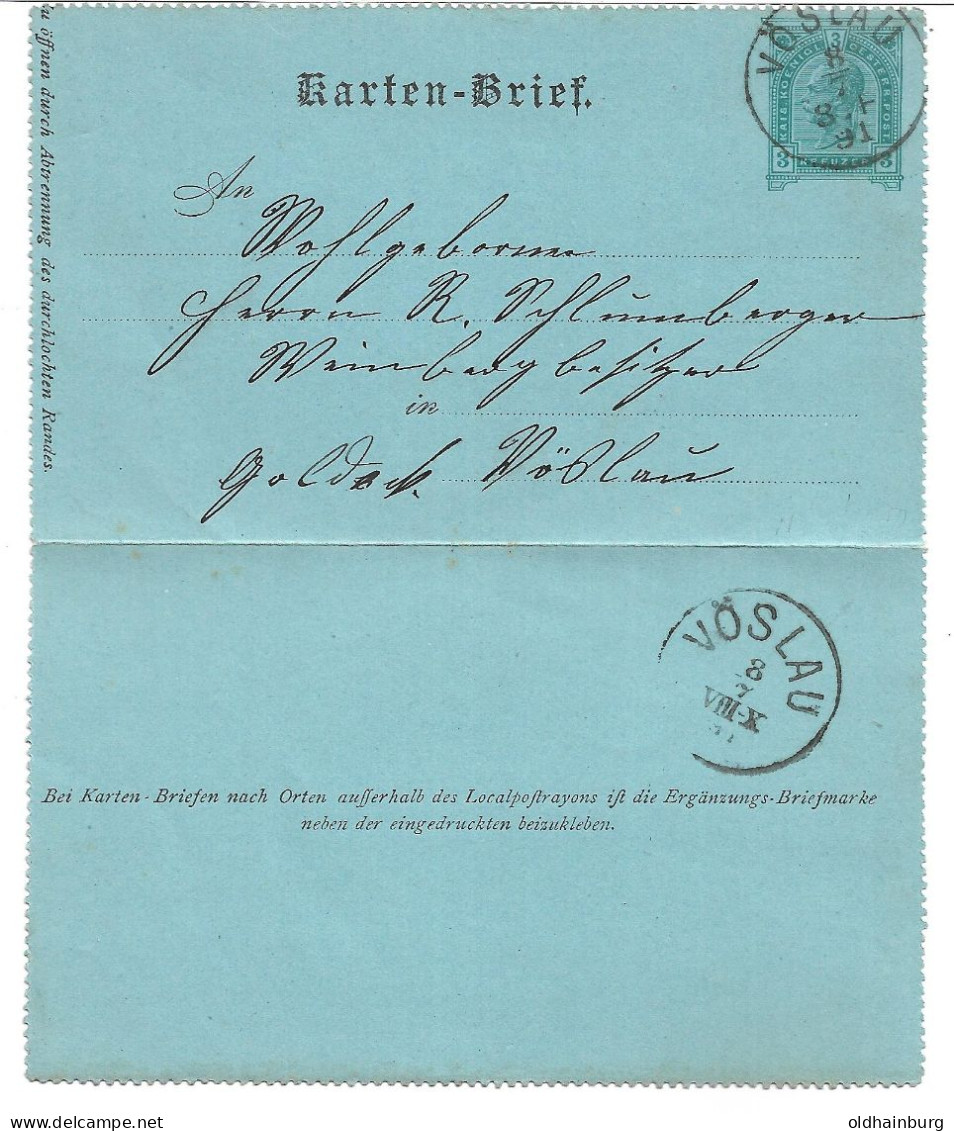 Zu öffnen durch Abtrennung des durchlochten Randes.
Karten-Brief.
VÖSLAU
8
7
91
3
KREUZER
3
3
An
Wohlgeboren
Herrn R. Schlumberger
Weinbergbesitzer
in
Goldeck. Vöslau
VÖSLAU
8
7
VIII-X
Bei Karten-Briefen nach Orten auſſerhalb des Localpoſtrayons iſt die Ergänzungs-Briefmarke
neben der eingedruckten beizukleben.
oldhainburg
www.delcampe.net